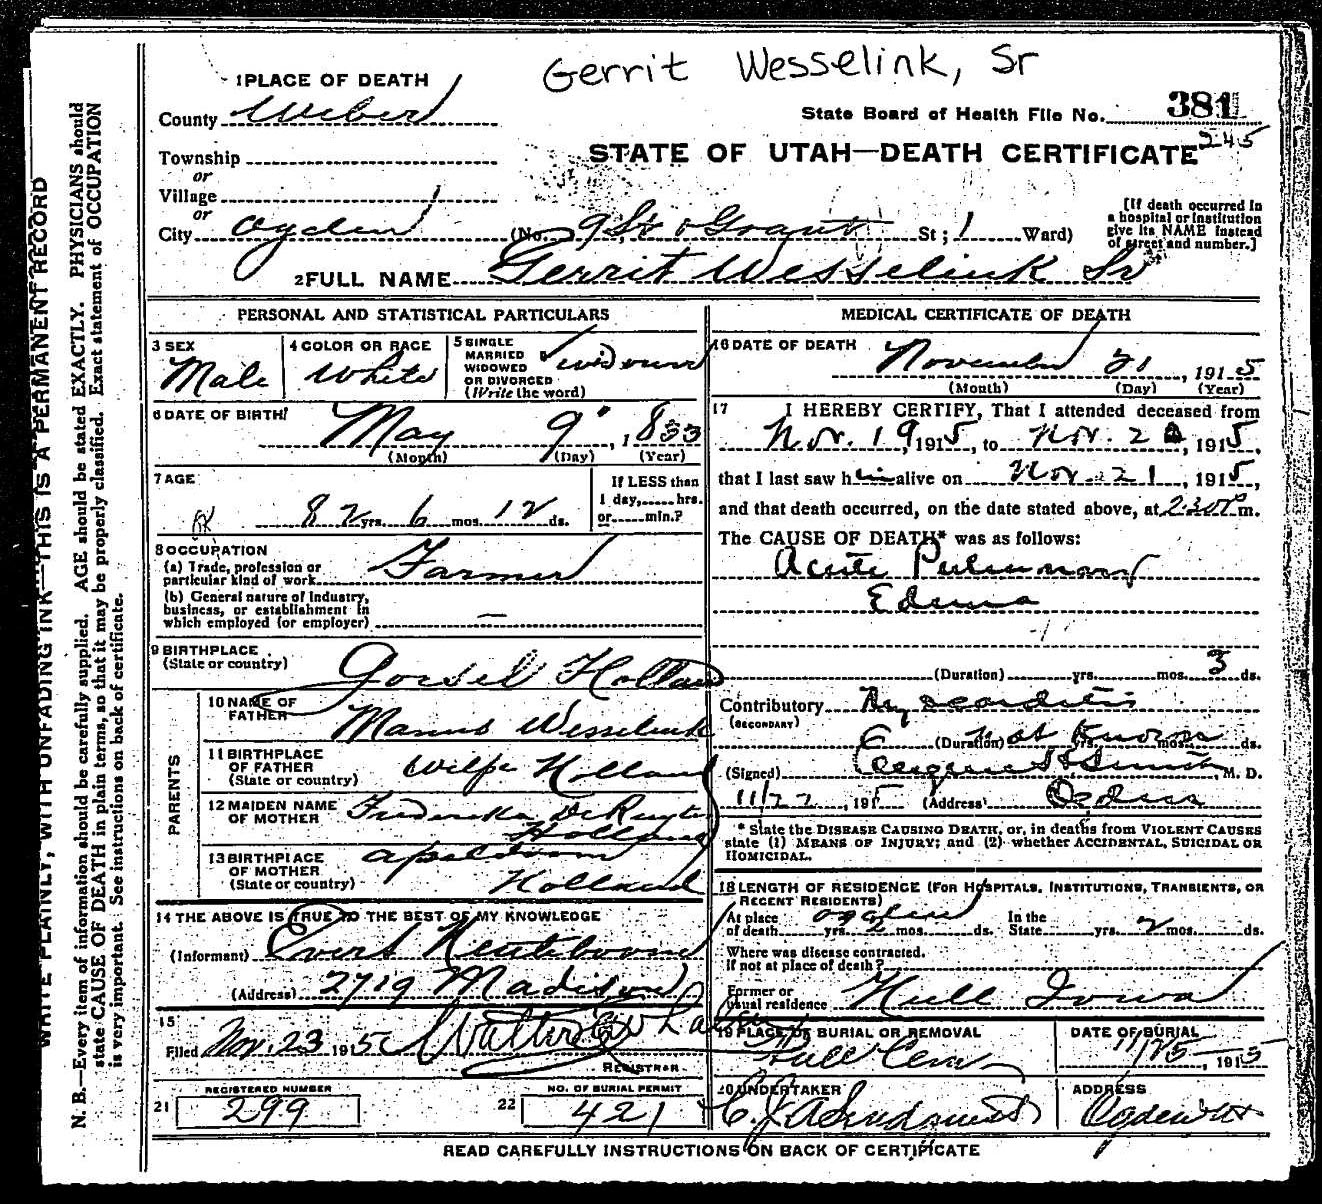 Gerrit Wesselink, Sr
1 PLACE OF DEATH
County Weber
State Board of Health File No. 381
245
Township
or
STATE OF UTAH—DEATH CERTIFICATE
Village
or
City Ogden (No. 9 St & Grant St; 1 Ward)
[If death occurred in
a hospital or institution
give its NAME instead
of street and number.]
2 FULL NAME Gerrit Wesselink Sr
PERSONAL AND STATISTICAL PARTICULARS
3 SEX
Male
4 COLOR OR RACE
White
5 SINGLE
MARRIED
WIDOWED
OR DIVORCED
(Write the word)
Widower
6 DATE OF BIRTH
May 9, 1833
(Month) (Day) (Year)
7 AGE
82 yrs. 6 mos. 12 ds.
If LESS than
1 day, hrs.
or min.?
8 OCCUPATION
(a) Trade, profession or
particular kind of work Farmer
(b) General nature of industry,
business, or establishment in
which employed (or employer) —
9 BIRTHPLACE
(State or country)
Gorsel Holland
PARENTS
10 NAME OF
FATHER
Manus Wesselink
11 BIRTHPLACE
OF FATHER
(State or country)
Wilpe Holland
12 MAIDEN NAME
OF MOTHER
Frederika De Ruyter
Holland
13 BIRTHPLACE
OF MOTHER
(State or country)
Apeldoorn
Holland
14 THE ABOVE IS TRUE TO THE BEST OF MY KNOWLEDGE
(Informant) Evert Neuteboom
(Address) 2719 Madison
15
Filed Nov. 23 1915 Walter
REGISTRAR
REGISTERED NUMBER
21 299
NO. OF BURIAL PERMIT
22 421
MEDICAL CERTIFICATE OF DEATH
16 DATE OF DEATH
November 21, 1915
(Month) (Day) (Year)
17 I HEREBY CERTIFY, That I attended deceased from
Nov. 19, 1915, to Nov. 21, 1915,
that I last saw him alive on Nov. 21, 1915,
and that death occurred, on the date stated above, at 2:30 P m.
The CAUSE OF DEATH* was as follows:
Acute Pulmonary
Edema
(Duration) yrs. mos. 3 ds.
Contributory Myocarditis
(SECONDARY)
(Duration) not known yrs. mos. ds.
(Signed) Eugene H Smith, M. D.
11/22, 1915 (Address) Ogden
* State the DISEASE CAUSING DEATH, or, in deaths from VIOLENT CAUSES
state (1) MEANS OF INJURY; and (2) whether ACCIDENTAL, SUICIDAL OR
HOMICIDAL.
18 LENGTH OF RESIDENCE (FOR HOSPITALS, INSTITUTIONS, TRANSIENTS, OR
RECENT RESIDENTS)
At place Ogden
of death yrs. 2 mos. ds.
In the
State yrs. 2 mos. ds.
Where was disease contracted,
If not at place of death?
Former or
usual residence Hull Iowa
19 PLACE OF BURIAL OR REMOVAL
Hull Cem
DATE OF BURIAL
11/25, 1915
20 UNDERTAKER
ADDRESS
Ogden Ut
READ CAREFULLY INSTRUCTIONS ON BACK OF CERTIFICATE
WRITE PLAINLY, WITH UNFADING INK—THIS IS A PERMANENT RECORD
N. B.—Every item of information should be carefully supplied. AGE should be stated EXACTLY. PHYSICIANS should
state CAUSE OF DEATH in plain terms, so that it may be properly classified. Exact statement of OCCUPATION
is very important. See instructions on back of certificate.